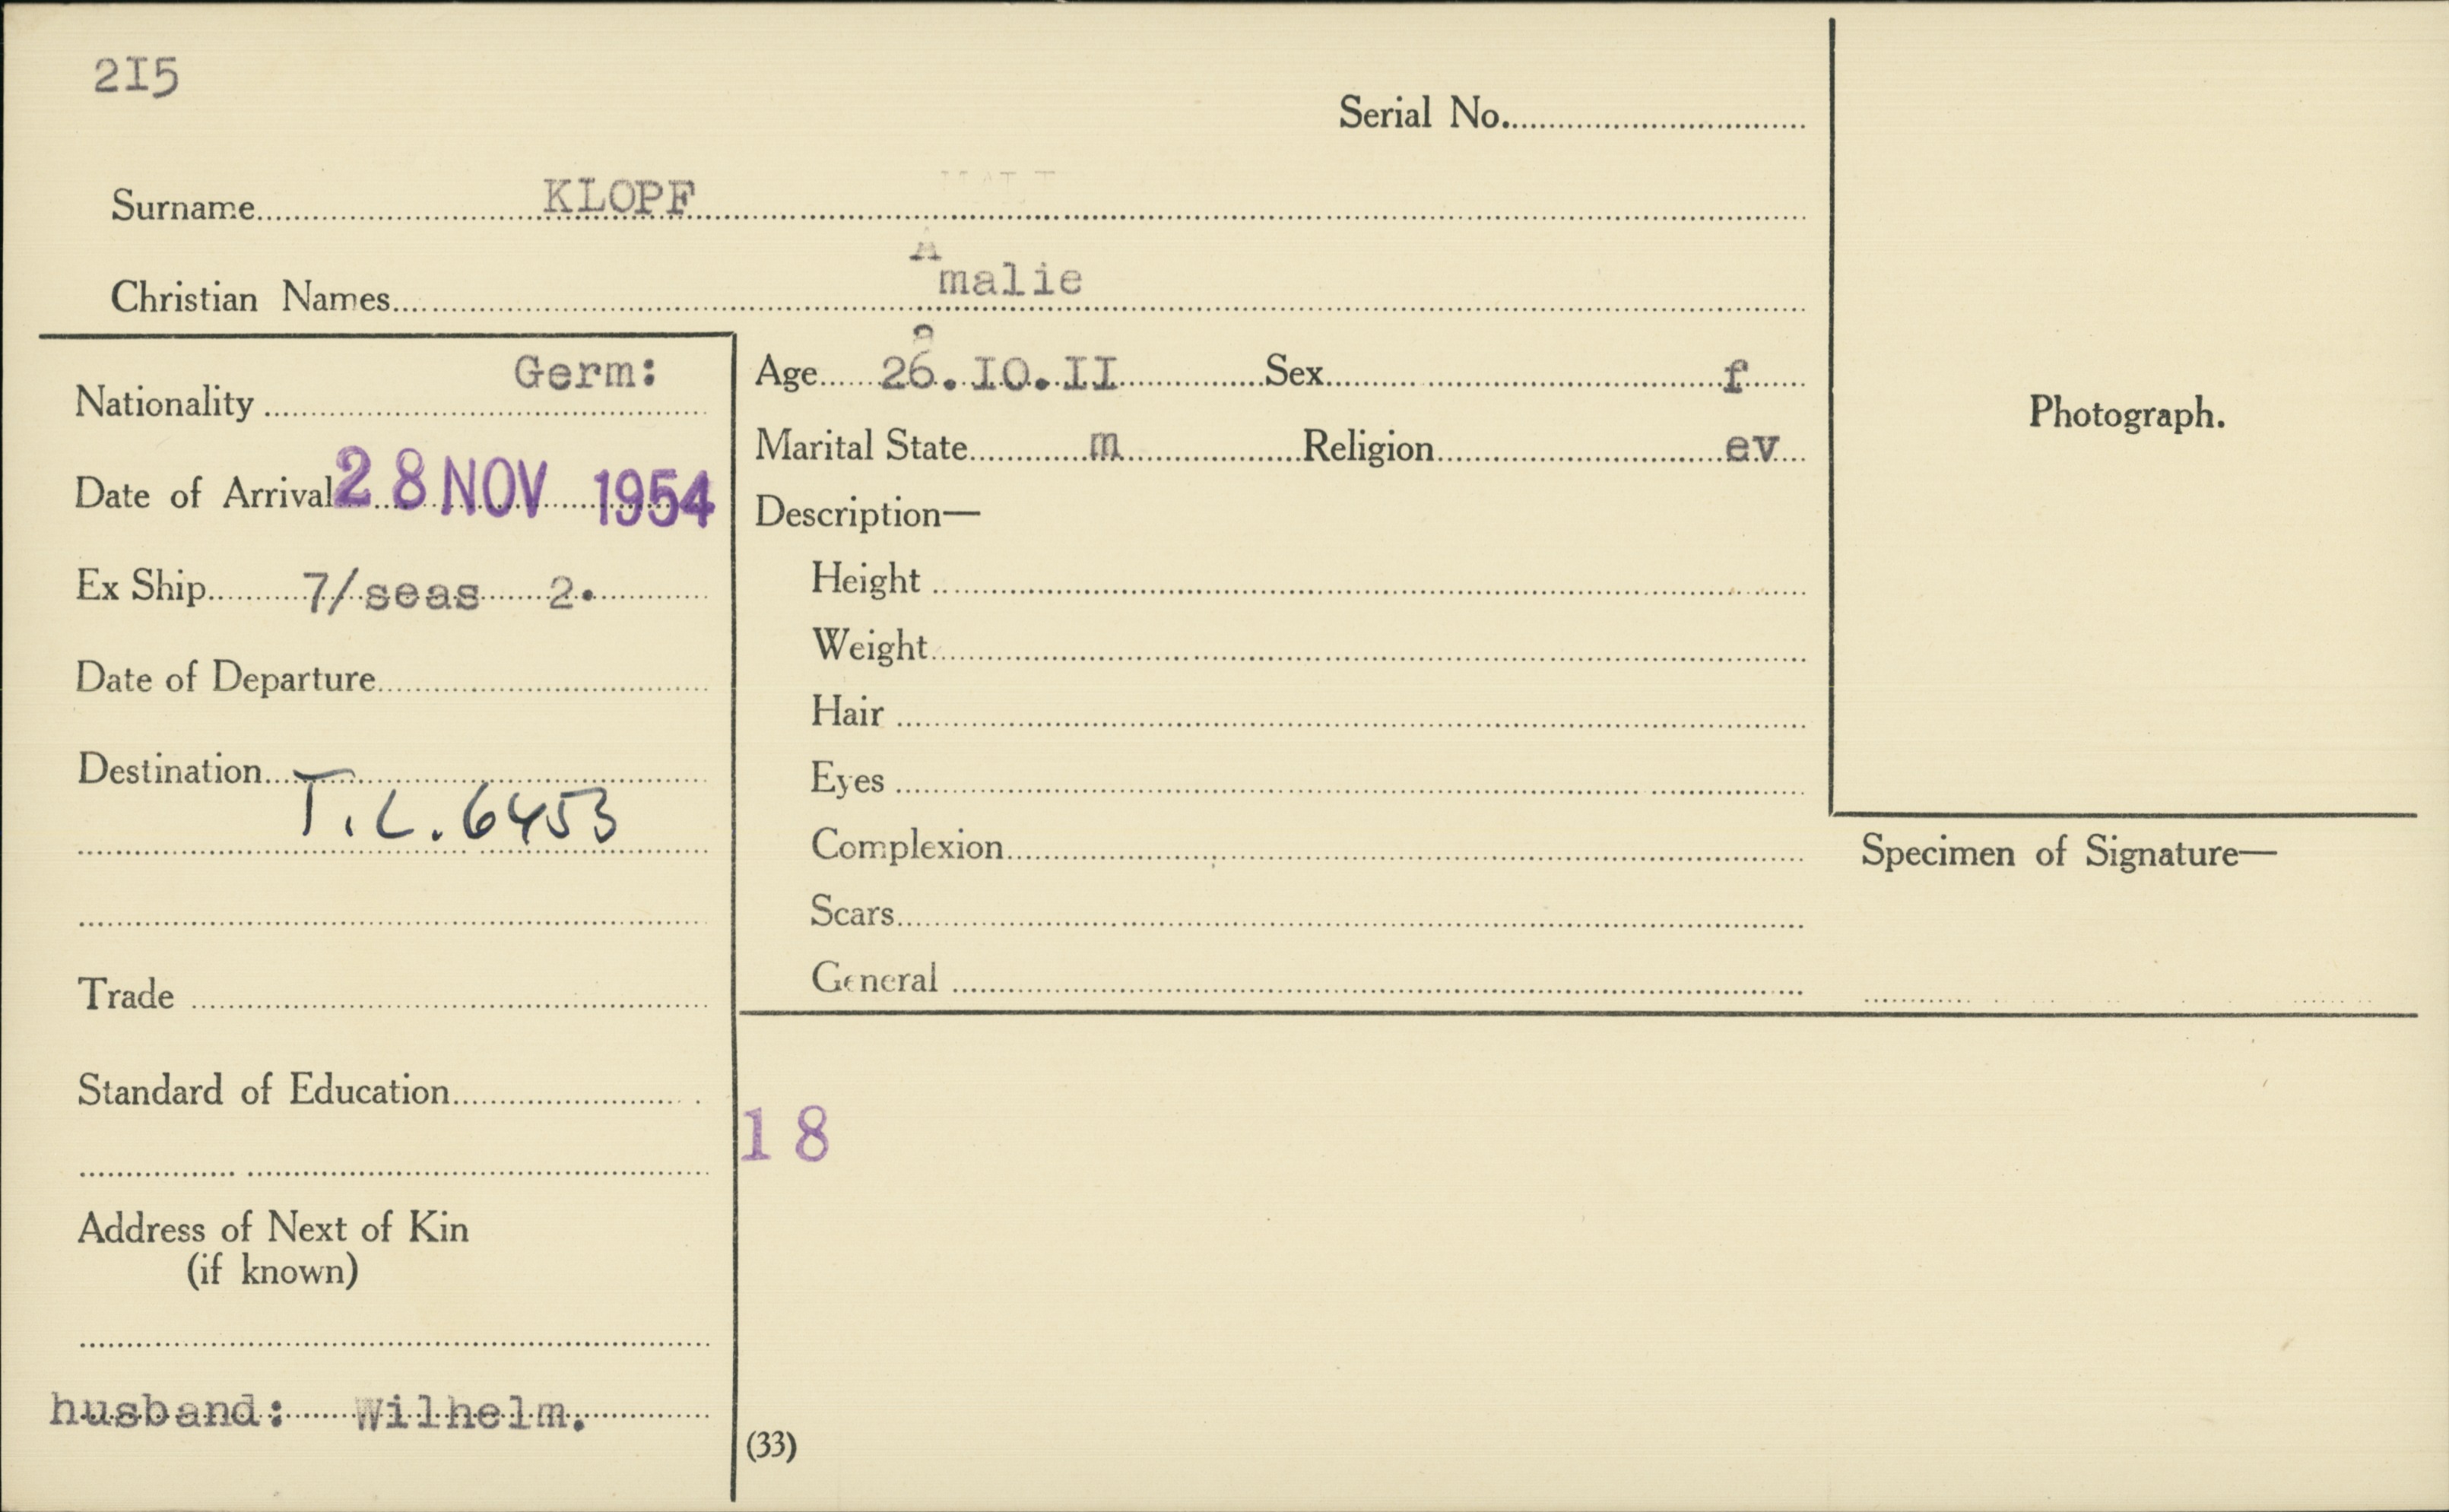 2I5
Serial No.
Surname KLOPF
Christian Names Amalie
Nationality Germ:
Date of Arrival 28 NOV 1954
Ex Ship 7/seas 2.
Date of Departure
Destination
T.L. 6453
Trade
Standard of Education
Address of Next of Kin
(if known)
husband: Wilhelm.
Age 26.IO.II Sex f
Marital State m Religion ev
Description—
Height
Weight
Hair
Eyes
Complexion
Scars
General
18
(33)
Photograph.
Specimen of Signature—